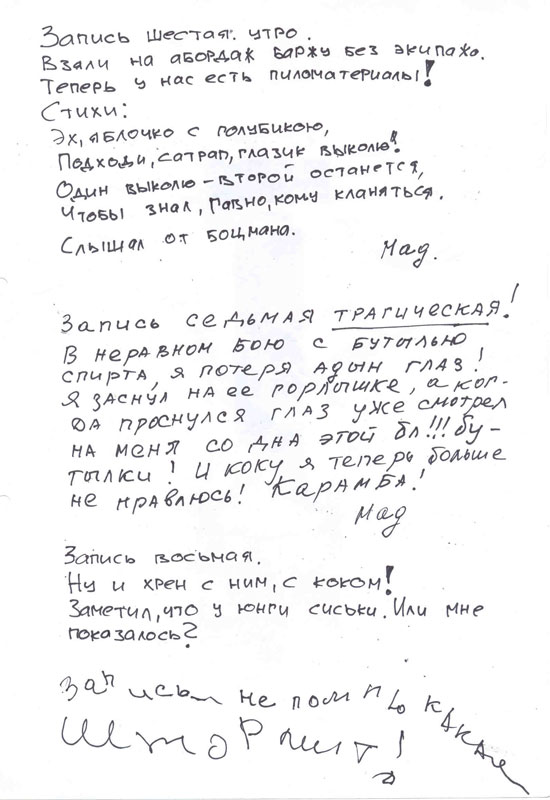 Запись шестая. утро.
Взяли на абордаж баржу без экипажа.
Теперь у нас есть пиломатериалы!
Стихи:
Эх, яблочко с голубикою,
Подходи, сатрап, глазик выколю!
Один выколю – второй останется,
Чтобы знал, говно, кому кланяться.
Слышал от боцмана.
Мад.
Запись седьмая трагическая!
В неравном бою с бутылью
спирта, я потеря адын глаз!
Я заснул на ее горлышке, а ког-
да проснулся глаз уже смотрел
на меня со дна этой бл!!! бу-
тылки! И коку я теперь больше
не нравлюсь! Карамба!
Мад
Запись восьмая.
Ну и хрен с ним, с коком!
Заметил, что у юнги сиськи. Или мне
показалось?
Запись не помню какая
Штормит!